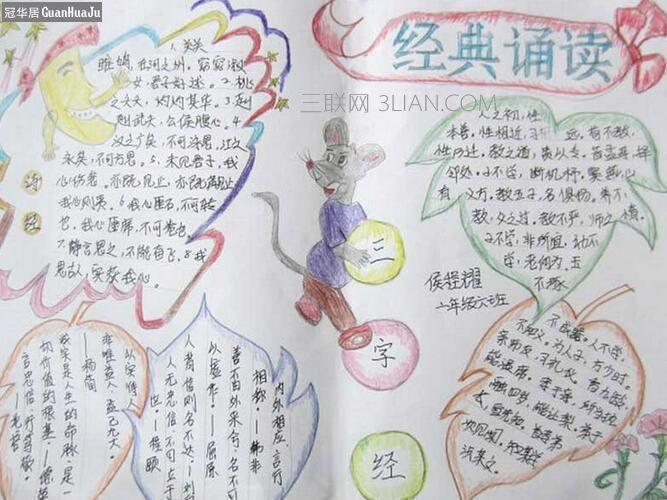 冠华居 GuanHuaJu
经典诵读
三联网 3LIAN.COM
1.关关
雎鸠,在河之洲,窈窕淑
女君子好逑。2.桃
之夭夭,灼灼其华。3.赳
赳武夫,公侯腹心。4.
汉之广矣,不可泳思。江之
永矣,不可方思。5.未见君子,我
心伤悲。亦既见止,亦既觏止
我心则夷。6.我心匪石,不可转
也。我心匪席,不可卷也
7.静言思之,不能奋飞。8.我
思古人,实获我心。
诗
经
人之初,性
本善。性相近,习相远。苟不教,
性乃迁。教之道,贵以专。昔孟母,择
邻处。子不学,断机杼。窦燕山
有义方。教五子,名俱扬。养不
教,父之过。教不严,师之惰。
子不学,非所宜。幼不
学,老何为。玉
不琢
三
字
经
侯程耀
六班
不成器。人不学,
不知义。为人子,方少时。
亲师友,习礼仪。香九龄
能温席。
融四岁,能让梨。弟于
长,宜先知。首孝弟
次见闻。知某数
识某文。
内外相应,言行
相称。——韩非
善不由外来兮,名不可
以虚作。——屈原
人若信则名不达。——刘
人无忠信,不可立于
世。——程颐
——杨简
诚实是人生的命脉,是一
切价值的根基。——德莱
言忠信,行笃敬。
——孔子